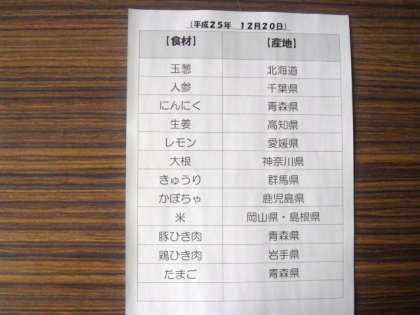 （平成２５年　１２月２０日）
【食材】　【産地】
玉葱　北海道
人参　千葉県
にんにく　青森県
生姜　高知県
レモン　愛媛県
大根　神奈川県
きゅうり　群馬県
かぼちゃ　鹿児島県
米　岡山県・島根県
豚ひき肉　青森県
鶏ひき肉　岩手県
だまご　青森県